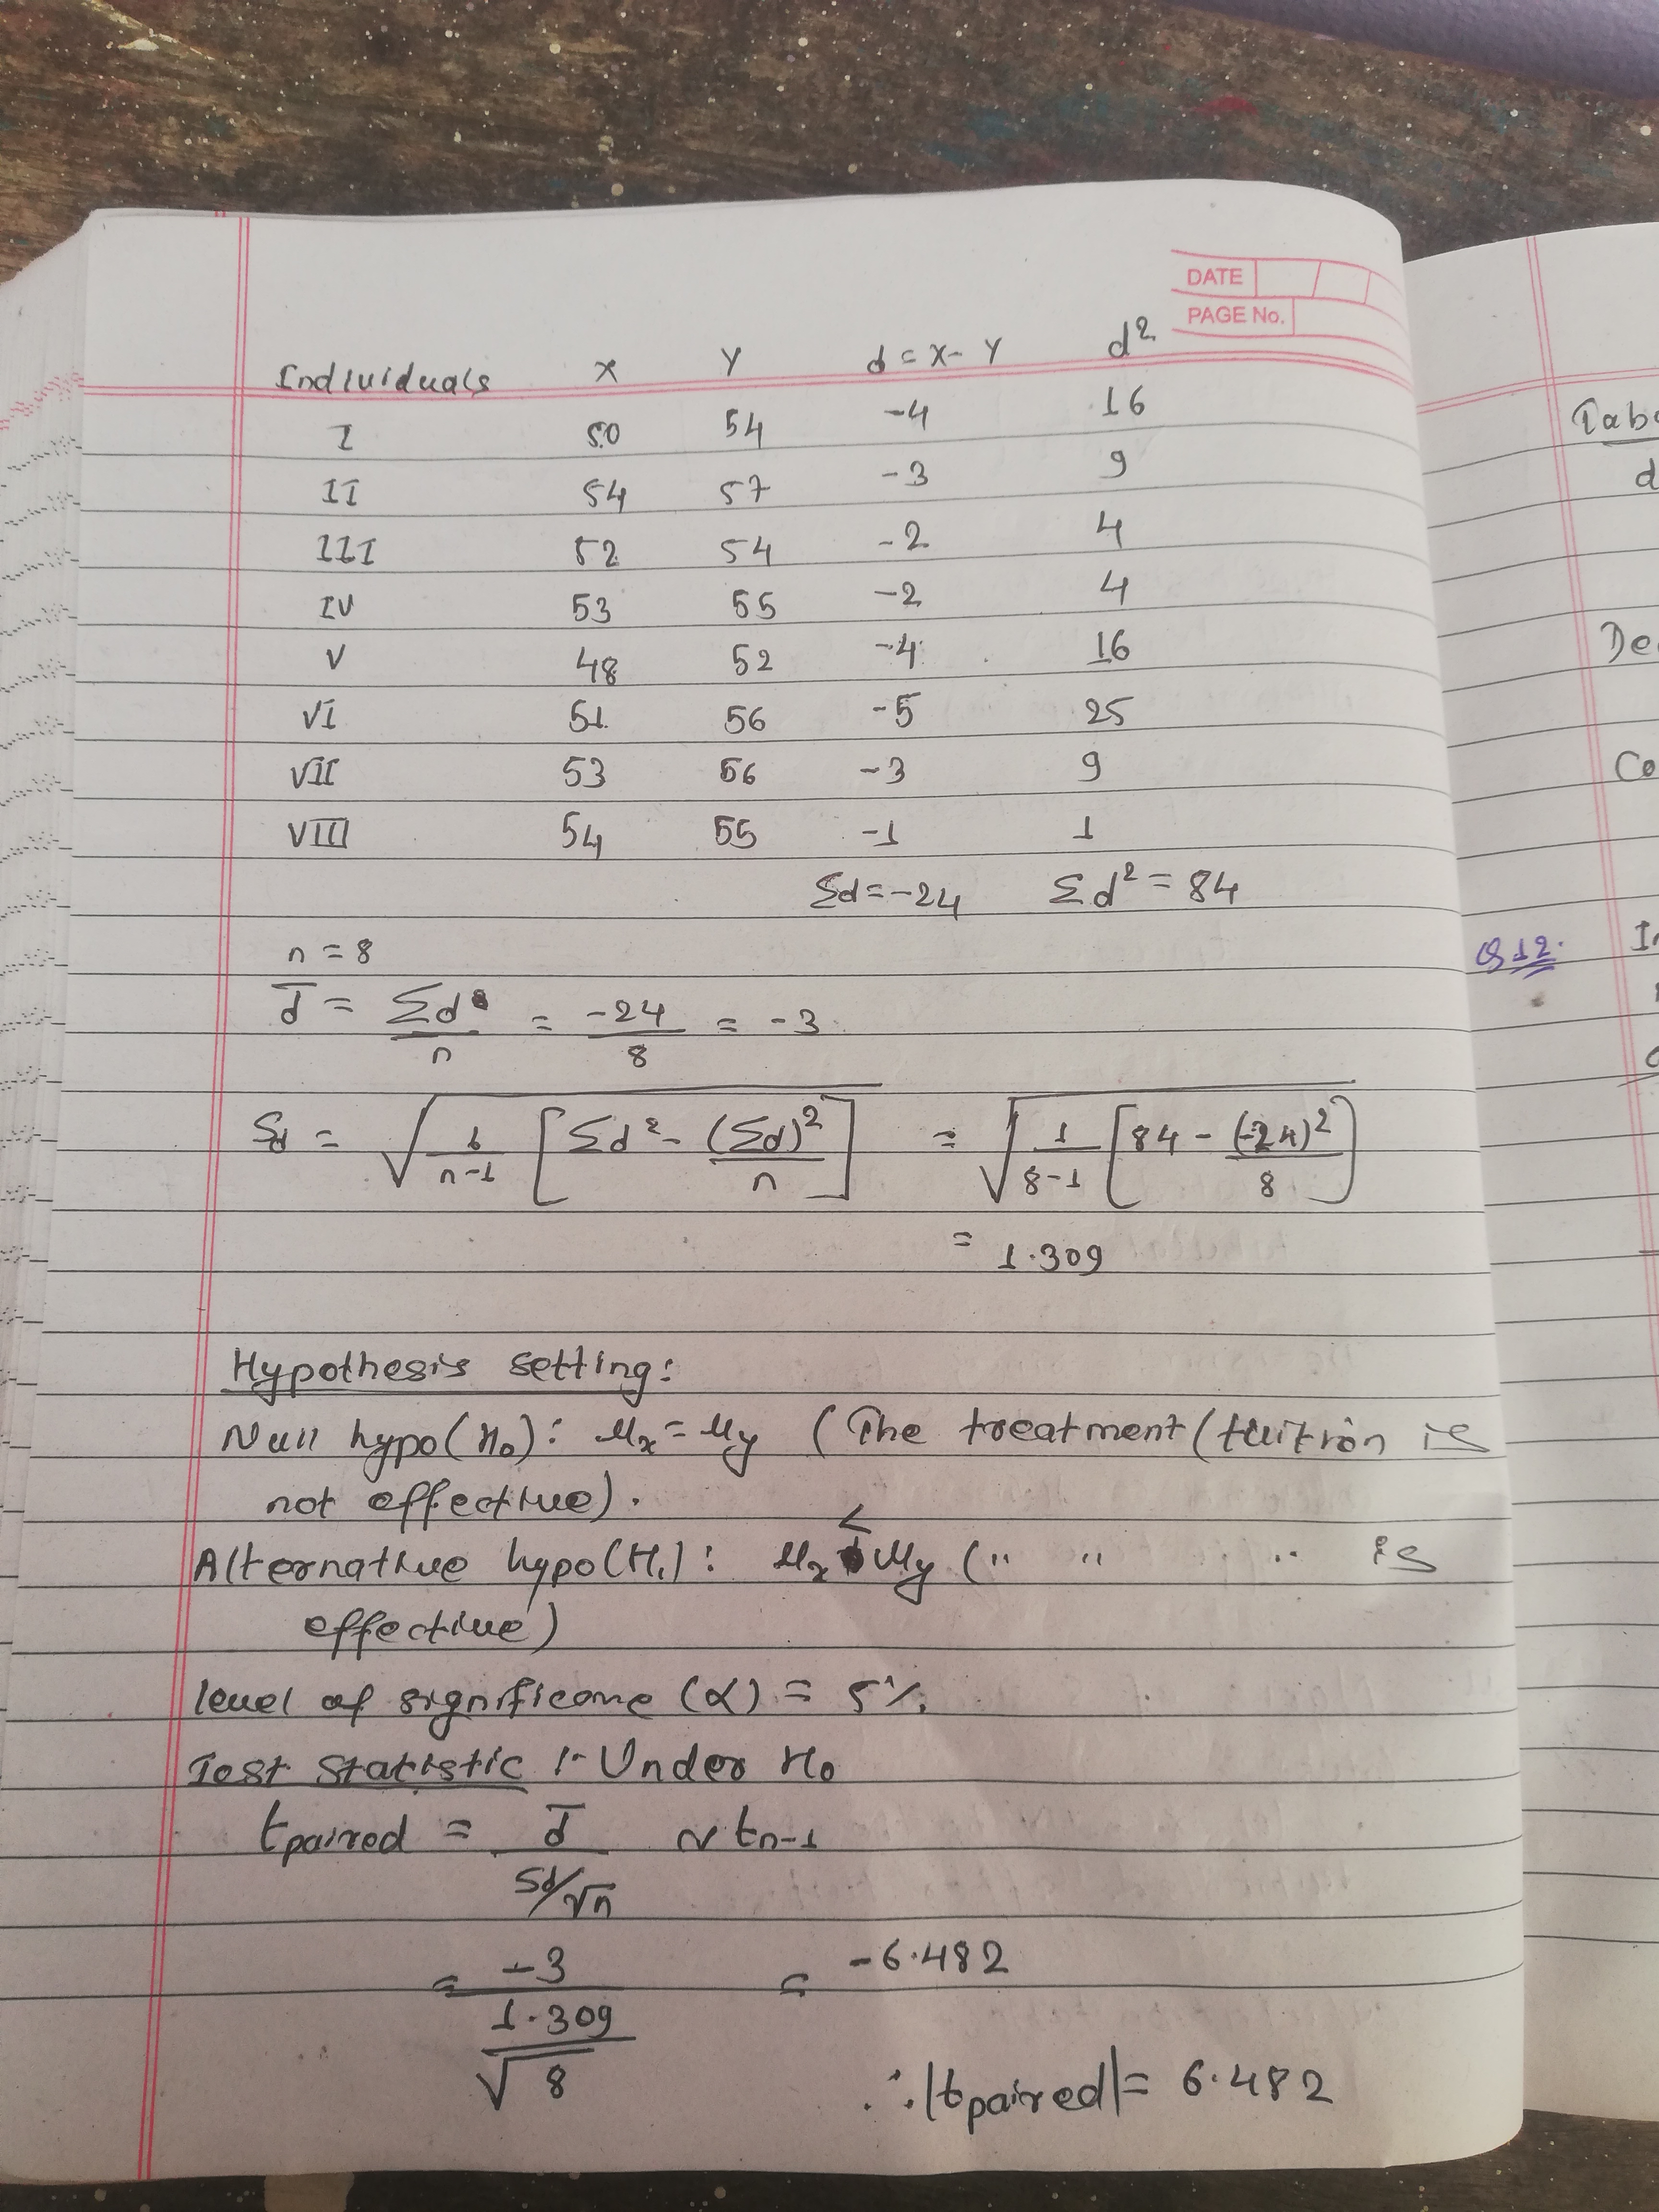 DATE
PAGE No.
Individuals x y d = x - y d²
I 50 54 -4 16
II 54 57 -3 9
III 52 54 -2 4
IV 53 55 -2 4
V 48 52 -4 16
VI 51 56 -5 25
VII 53 56 -3 9
VIII 54 55 -1 1
Σd = -24 Σd² = 84
n = 8
d̄ = Σd/n = -24/8 = -3
Sd = √(1/(n-1) [Σd² - (Σd)²/n]) = √(1/(8-1) [84 - (-24)²/8])
= 1.309
Hypothesis setting:
Null hypo(H₀): μx = μy (The treatment (tuition is
not effective).
Alternative hypo(H₁): μx < μy (" " " is
effective)
level of significane (α) = 5%
Test Statistic :- Under H₀
tpaired = d̄/(Sd/√n) ~ tn-1
= -3/(1.309/√8) = -6.482
∴ |tpaired| = 6.482
Q12.